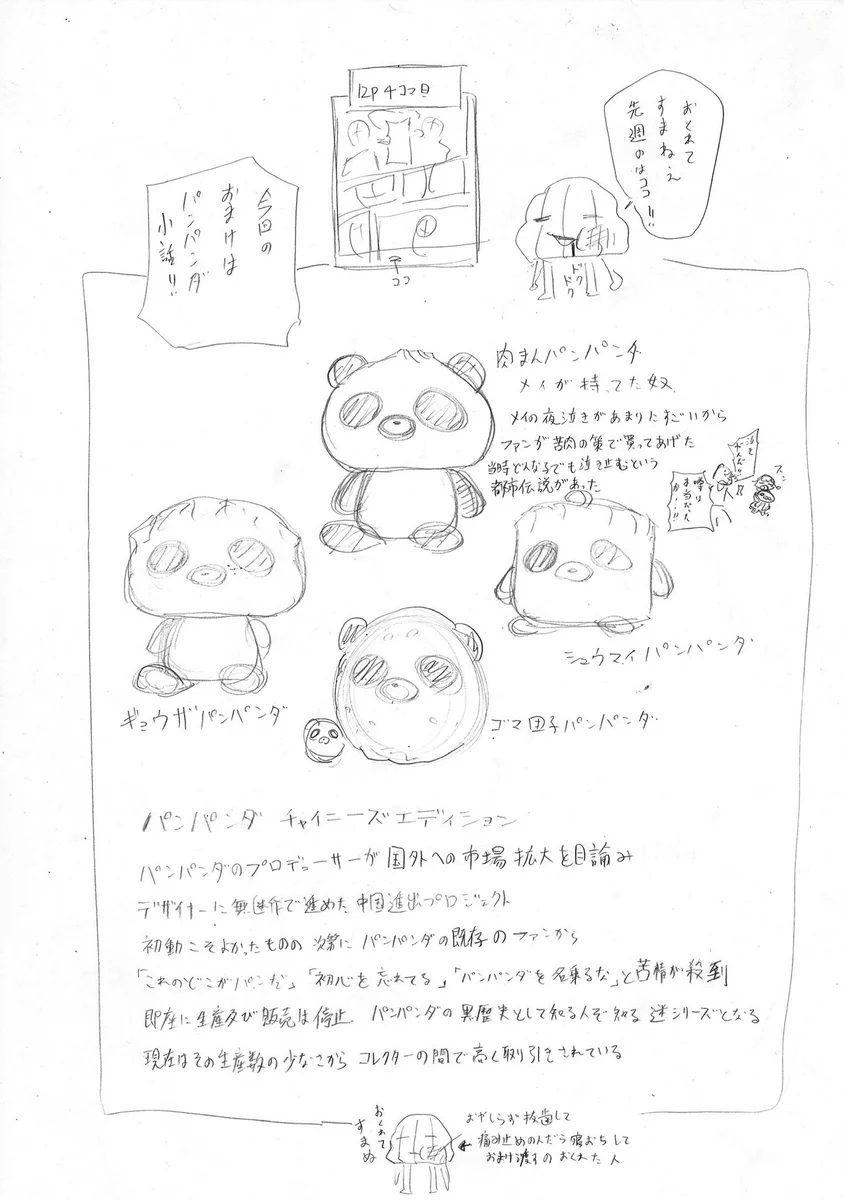 おくれて
すまねえ
先週のはココ!!
12P 4コマ目
ココ
ドク
ドク
今回の
おまけは
パンパンダ
小話!!
肉まんパンパンダ
メイが持ってた奴
メイの夜泣きがあまりにすごいから
ファンが苦肉の策で買ってあげた
当時どんな子でも泣き止むという
都市伝説があった
泣き
やんだ!!
噂は
本当だった
か…!!
スン
シュウマイパンパンダ
ギョウザパンパンダ
ゴマ団子パンパンダ
パンパンダ チャイニーズエディション
パンパンダのプロデューサーが国外への市場拡大を目論み
デザイナーに無断で進めた中国進出プロジェクト
初動こそよかったものの 次第にパンパンダの既存のファンから
「これのどこがパンだ」「初心を忘れてる」「パンパンダを名乗るな」と苦情が殺到
即座に生産及び販売は停止 パンパンダの黒歴史として知る人ぞ知る迷シリーズとなる
現在はその生産数の少なさから コレクターの間で高く取引きされている
おくれて
すまぬ
おやしらず抜歯して
痛み止めのんだら寝おちして
おまけ渡すのおくれた人